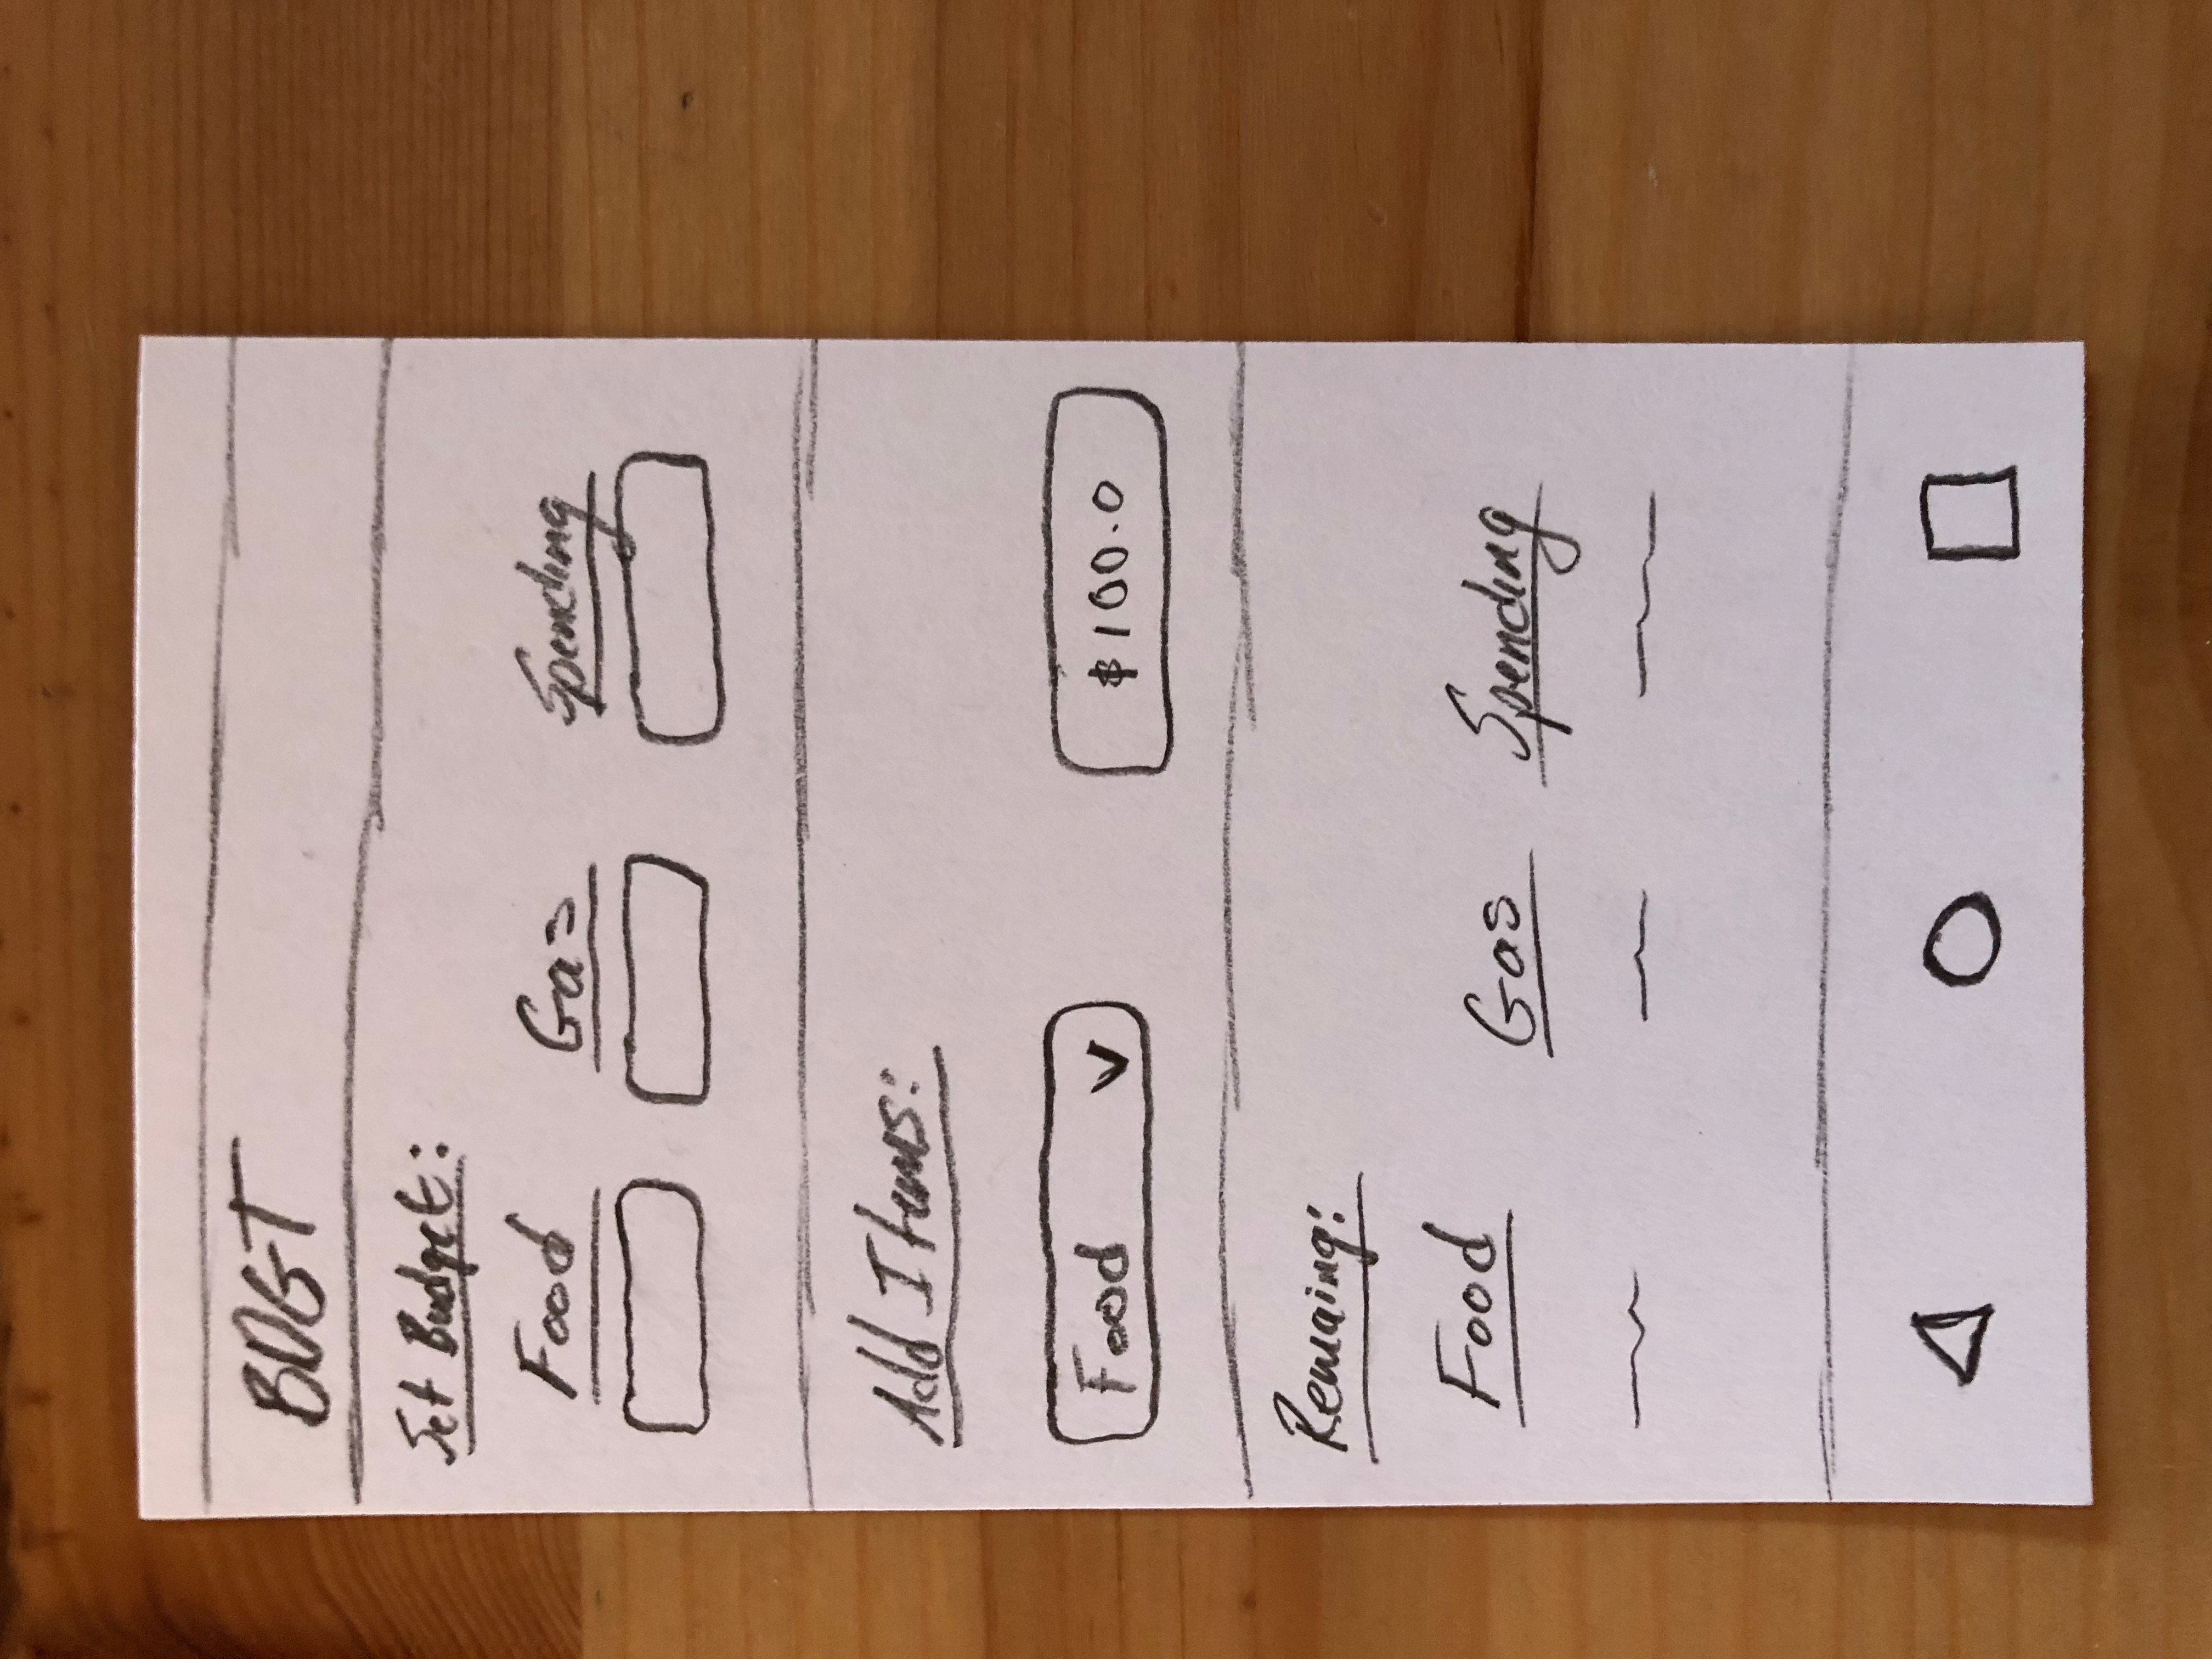 BDGT
Set Budget:
Food Gas Spending
Add Items:
Food V $100.0
Remaing:
Food Gas Spending